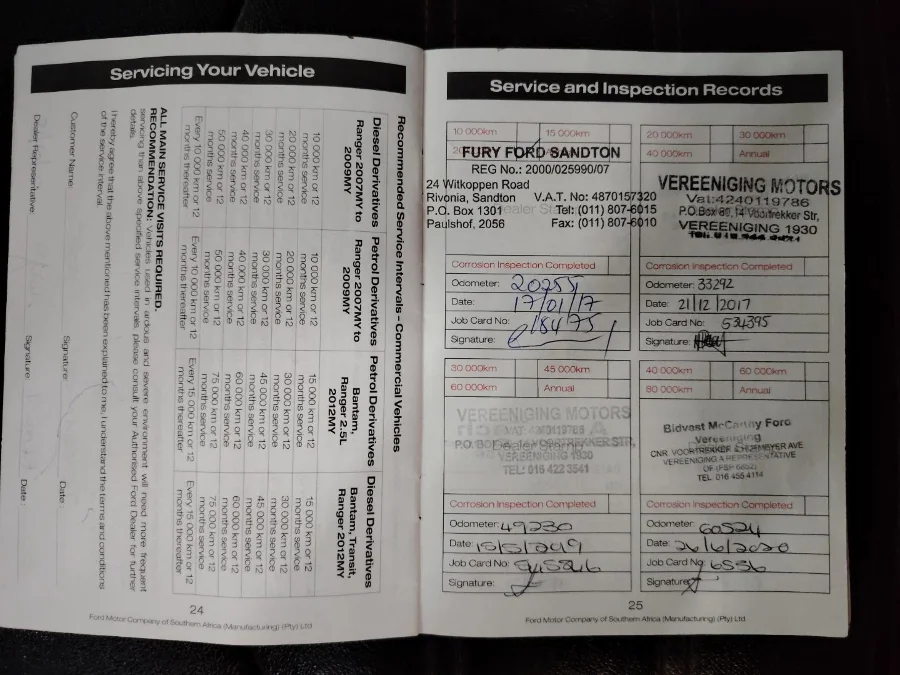 Servicing Your Vehicle
Recommended Service Intervals - Commercial Vehicles
Diesel Derivatives
Ranger 2007MY to
2009MY
10 000 km or 12
months service
20 000 km or 12
months service
30 000 km or 12
months service
40 000 km or 12
months service
50 000 km or 12
months service
Every 10 000 km or 12
months thereafter
Petrol Derivatives
Ranger 2007MY to
2009MY
10 000 km or 12
months service
20 000 km or 12
months service
30 000 km or 12
months service
40 000 km or 12
months service
50 000 km or 12
months service
Every 10 000 km or 12
months thereafter
Petrol Derivatives
Bantam,
Ranger 2.5L
2012MY
15 000 km or 12
months service
30 000 km or 12
months service
45 000 km or 12
months service
60 000 km or 12
months service
75 000 km or 12
months service
Every 15 000 km or 12
months thereafter
Diesel Derivatives
Bantam, Transit,
Ranger 2012MY
15 000 km or 12
months service
30 000 km or 12
months service
45 000 km or 12
months service
60 000 km or 12
months service
75 000 km or 12
months service
Every 15 000 km or 12
months thereafter
ALL MAIN SERVICE VISITS REQUIRED.
RECOMMENDATION: Vehicles used in arduous and severe environment will need more frequent
servicing than above specified service intervals, please consult your Authorised Ford Dealer for further
details.
I hereby agree that the above mentioned has been explained to me, I understand the terms and conditions
of the service interval.
Customer Name: Signature: Date:
Dealer Representative: Signature: Date:
24
Ford Motor Company of Southern Africa (Manufacturing) (Pty) Ltd
Service and Inspection Records
10 000km 15 000km
FURY FORD SANDTON
REG No.: 2000/025990/07
24 Witkoppen Road
Rivonia, Sandton V.A.T. No: 4870157320
P.O. Box 1301 Tel: (011) 807-6015
Paulshof, 2056 Fax: (011) 807-6010
Corrosion Inspection Completed
Odometer: 20255
Date: 17/01/17
Job Card No: 18475
Signature:
20 000km 30 000km
40 000km Annual
VEREENIGING MOTORS
Vat: 4240119786
P.O.Box 80, 14 Voortrekker Str,
VEREENIGING 1930
Corrosion Inspection Completed
Odometer: 33292
Date: 21/12/2017
Job Card No: 534395
Signature:
30 000km 45 000km
60 000km Annual
VEREENIGING MOTORS
VAT: 4240119786
Dealer Stamp
VEREENIGING 1930
TEL: 016 422 3541
Corrosion Inspection Completed
Odometer: 49230
Date: 15/5/2019
Job Card No:
Signature:
40 000km 60 000km
80 000km Annual
Bidvest McCarthy Ford
Vereeniging
TEL 016 455 4114
Corrosion Inspection Completed
Odometer: 60524
Date: 26/6/2020
Job Card No: 6536
Signature:
25
Ford Motor Company of Southern Africa (Manufacturing) (Pty) Ltd